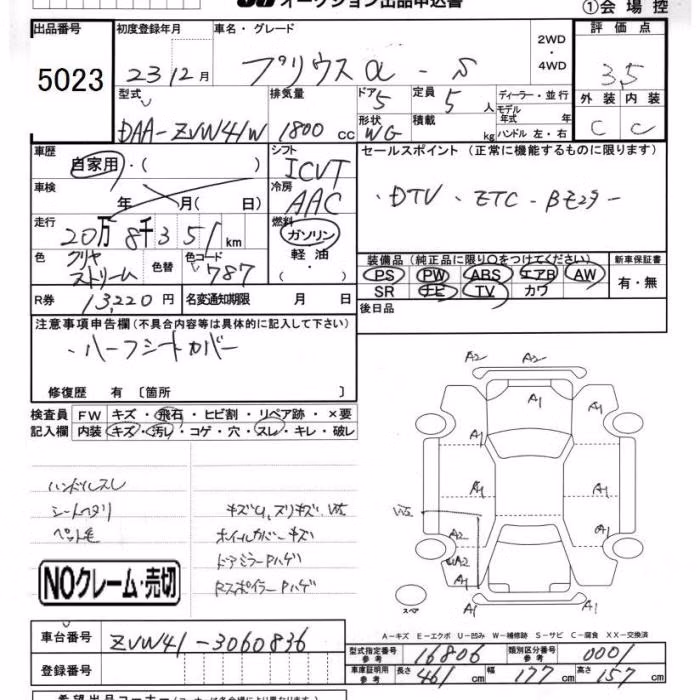 オークション出品申込書
①会場控
出品番号
5023
初度登録年月
23 12月
車名・グレード
プリウスα - S
2WD
・
4WD
評価点
3.5
外装 内装
C C
型式
DAA-ZVW41W
排気量
1800 cc
ドア
5
形状
WG
定員
5 人
積載
kg
ディーラー・並行
モデル
年式 年
ハンドル 左・右
車歴
自家用・( )
シフト
ICVT
冷房
AAC
燃料
ガソリン
・
軽油
・
( )
車検
年 月( 日)
走行
20万 8千 351 km
色
クリヤ
ストリーム
色替
色コード
787
R券
13,220円
名変通知期限 月 日
セールスポイント (正常に機能するものに限ります)
・DTV ・ETC
装備品(純正品に限り○をつけてください)
PS PW ABS エアB AW
SR ナビ TV カワ
新車保証書
有・無
後日品
注意事項申告欄(不具合内容等は具体的に記入して下さい)
・ハーフシートカバー
修復歴 有〔箇所 〕
検査員
記入欄
FW キズ・飛石・ヒビ割・リペア跡・×要
内装 キズ・汚レ・コゲ・穴・スレ・キレ・破レ
ハンドルスレ
シートヘタリ
ペット毛
ホイールカバーキズ
ドアミラーPハゲ
RスポイラーPハゲ
NOクレーム・売切
A2 A2
A1 A1
A1 A1
A1 A1 A1
A2
A1 A1
スペア
A-キズ E-エクボ U-凹み W-補修跡 S-サビ C-腐食 XX-交換済
車台番号
ZVW41-3060836
登録番号
型式指定番号
参考
16806
類別区分番号
参考
0001
車庫証明用
参考
長さ 461 cm
幅 177 cm
高さ 157 cm
希望出品コーナー